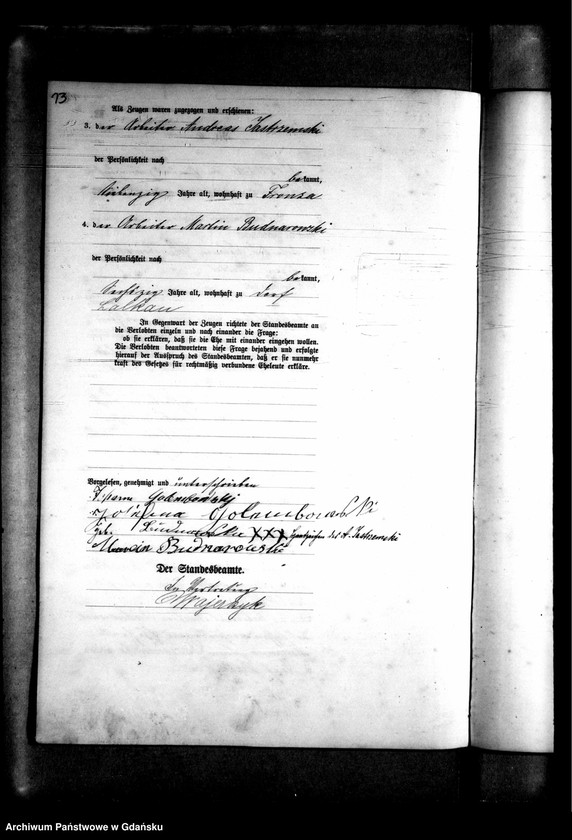 73
Als Zeugen waren zugezogen und erschienen:
3. der Arbeiter Andreas Jastrzemski
der Persönlichkeit nach
bekannt,
Jahre alt, wohnhaft zu Fronza
4. der Arbeiter Martin Budnarowski
der Persönlichkeit nach
bekannt,
Jahre alt, wohnhaft zu Dorf
Lalkau
In Gegenwart der Zeugen richtete der Standesbeamte an
die Verlobten einzeln und nach einander die Frage:
ob sie erklären, daß sie die Ehe mit einander eingehen wollen.
Die Verlobten beantworteten diese Frage bejahend und erfolgte
hierauf der Ausspruch des Standesbeamten, daß er sie nunmehr
kraft des Gesetzes für rechtmäßig verbundene Eheleute erkläre.
Vorgelesen, genehmigt und unterschrieben
Golembowski
Golembowski
XXX Handzeichen des A. Jastrzemski
Marcin Budnarowski
Der Standesbeamte.
In Vertretung
Archiwum Państwowe w Gdańsku